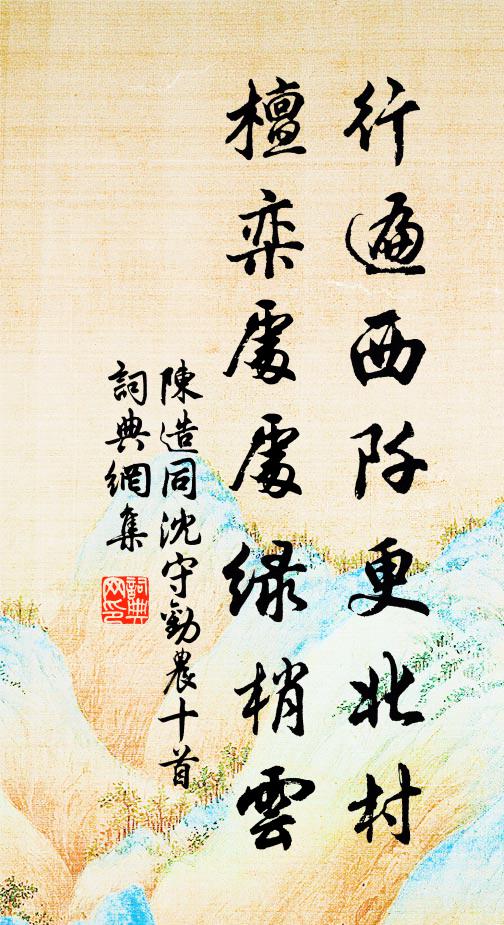 行遍西阡更北村
檀欒處處綠梢雲
陳造同沈守勸農十首
詞典網集
詞典
网